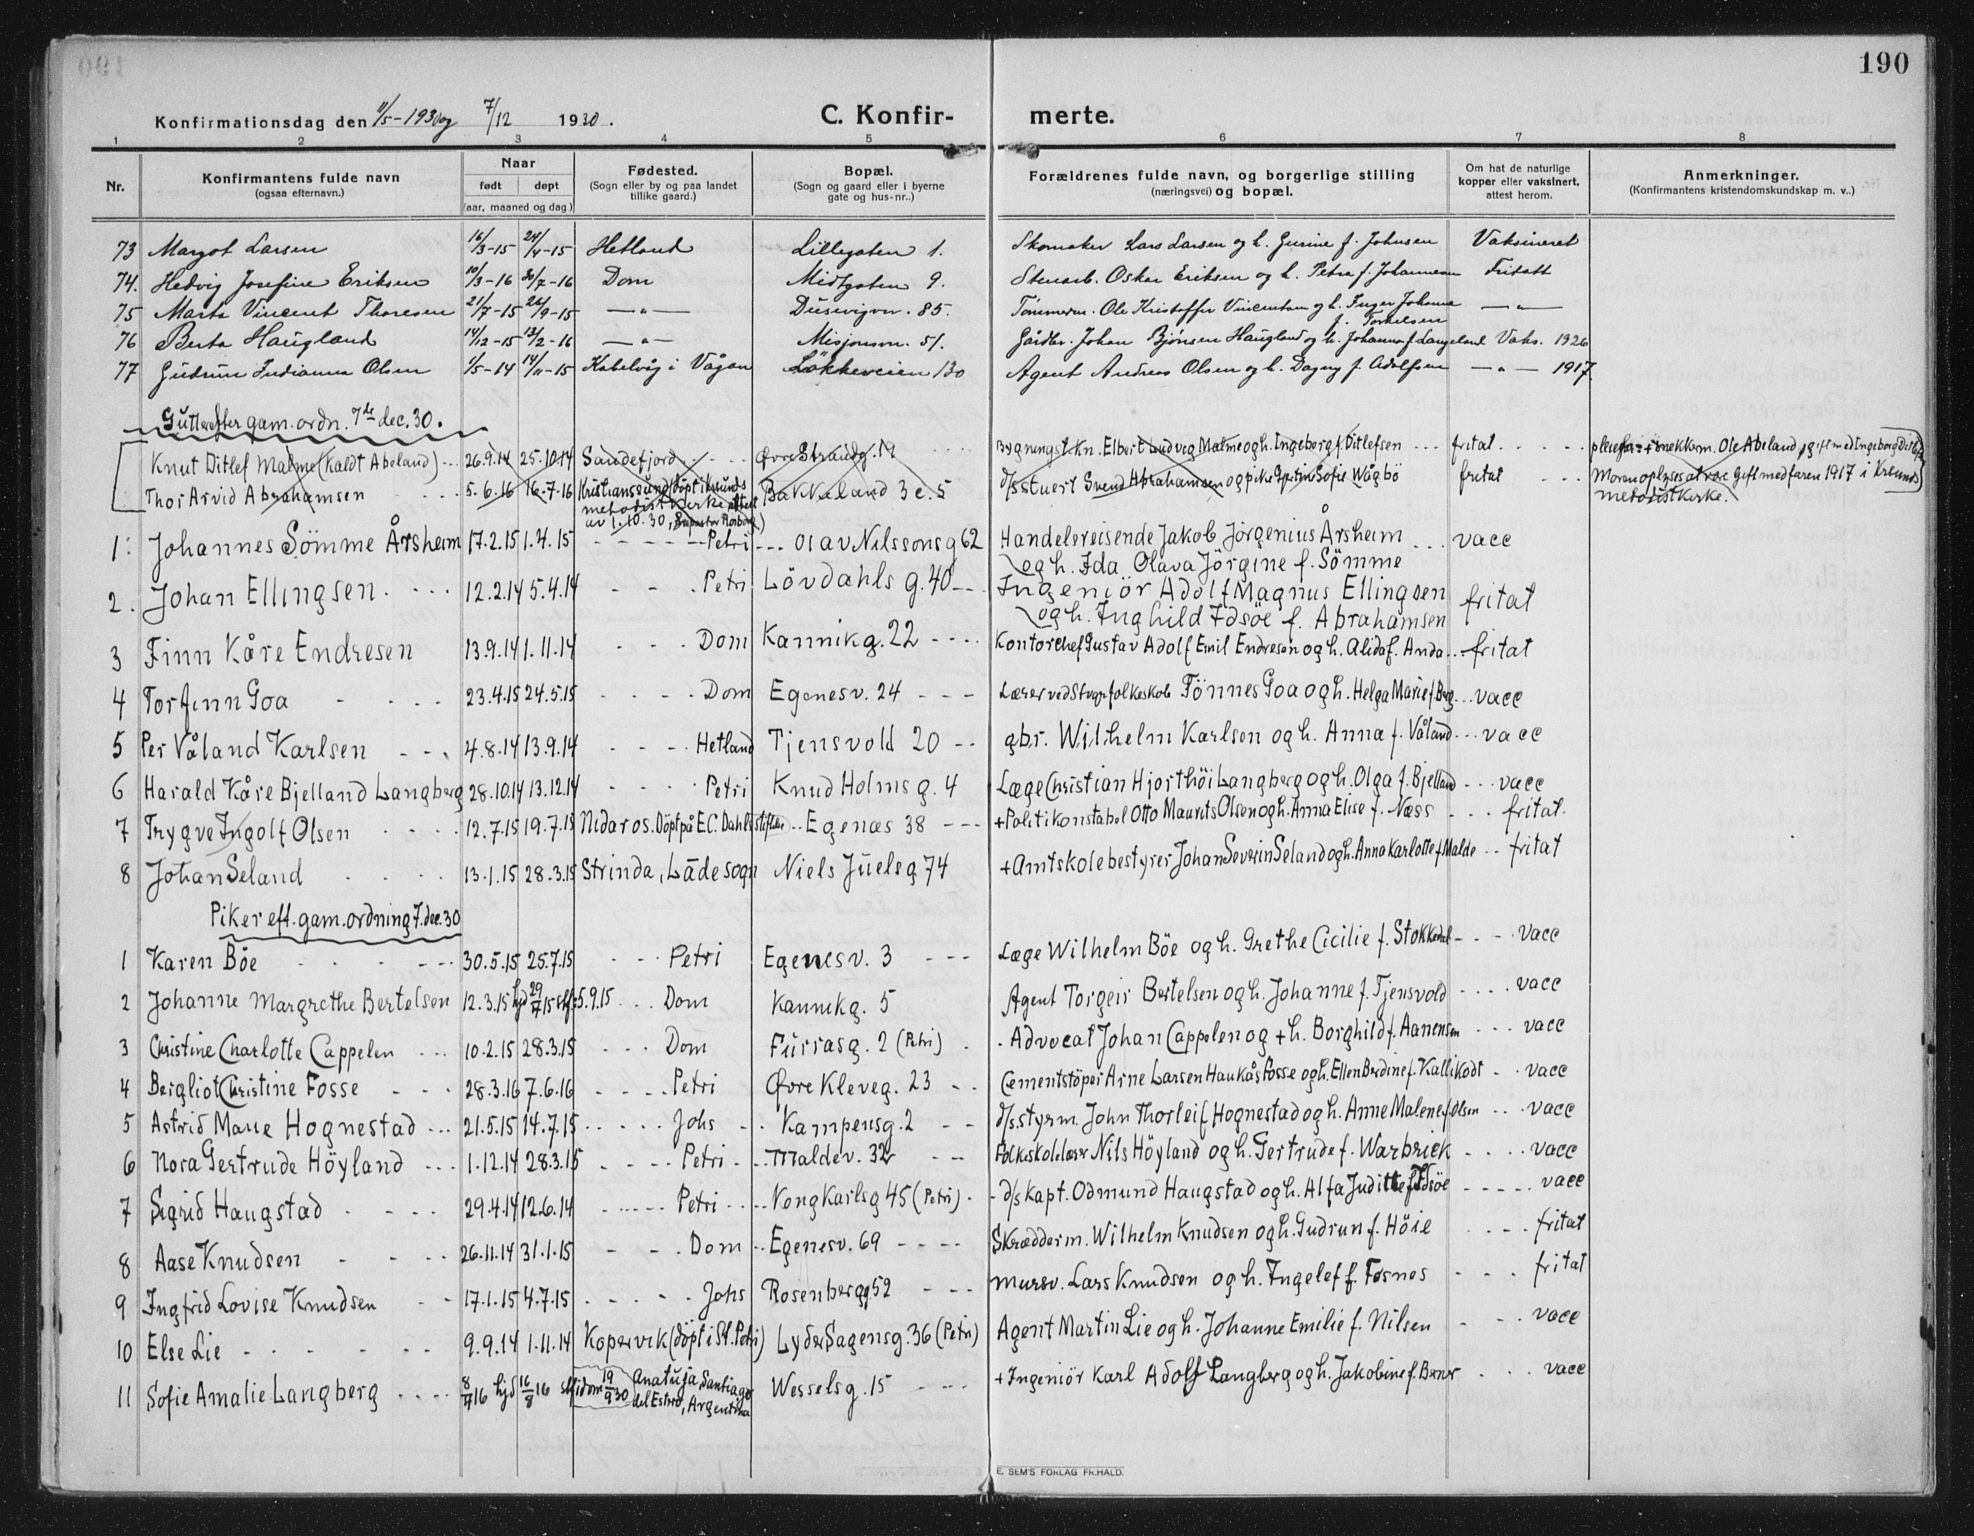 190
Konfirmationsdag den 11/5-1930 og 7/12 1930.
C. Konfirmerte.
1 2 3 4 5 6 7 8
Nr. Konfirmantens fulde navn (ogsaa efternavn.) Naar født døpt (aar, maaned og dag.) Fødested. (Sogn eller by og paa landet tillike gaard.) Bopæl. (Sogn og gaard eller i byerne gate og hus-nr..) Forældrenes fulde navn, og borgerlige stilling (næringsvei) og bopæl. Om hat de naturlige kopper eller vaksinert, attest herom. Anmerkninger. (Konfirmantens kristendomskundskap m. v..)
73 Margot Larsen 16/3-15 24/4-15 Hetland Lillegaten 1. Skomaker Lars Larsen og h. Gurine f. Johnsen Vaksineret
74. Hedvig Josefine Eriksen 10/3-16 30/7-16 Dom Midtgaten 9. Stenarb. Oskar Eriksen og h. Petra f. Johannesen Fritatt
75 Marta Vincent Thoresen 21/7-15 26/9-15 —„— Dusevigvn. 85. Tømmerm. Ole Kristoffer Vincentsen og h. Inger Johanne f. Torkelsen —„—
76 Berta Haugland 14/12-15 13/2-16 —„— Misjonsvn. 51. Gårdbr. Johan Bjønsen Haugland og h. Johanne f. Langeland Vaks. 1926
77 Gudrun Indianna Olsen 1/5-14 14/11-15 Kabelvåg i Vågan Løkkeveien 130 Agent Andreas Olsen og h. Dagny f. Adolfsen —„— 1917.
Gutter efter gam. ordn. 7de dec. 30.
Knut Ditlef Malme (kaldt Abeland) 26.9.14 25.10.14 Sandefjord Øvre Strandg. 19 Bygningst.kn. Elbert Ludvig Malme og h. Ingeborg f. Ditlefsen fritat
Thor Arvid Abrahamsen 5.6.16 16.7.16 Kristianssund (döpt i Krsunds metodistkirke attest av 1.10.30, Bakkeland 3 c. 5 d/s stuert Svend Abrahamsen og pike Gjertine Sofie Wågbö fritat Moren oplyses at være gift med faren 1917 i Krsunds metodistkirke.
1. Johannes Sömme Årsheim 17.2.15 1.4.15 Petri Olav Nilssons g 62 Handelsreisende Jakob Jörgenius Årsheim og h. Ida Olava Jörgine f. Sömme vacc
2. Johan Ellingsen 12.2.14 5.4.14 Petri Lövdahls g. 40 Ingeniör Adolf Magnus Ellingsen og h. Inghild Idsöe f. Abrahamsen fritat
3 Finn Kåre Endresen 13.9.14 1.11.14 Dom Kannikg. 22 Kontorchef Gustav Adolf Emil Endresen og h. Alida f. Anda fritat
4 Torfinn Goa 23.4.15 24.5.15 Dom Egenesv. 24 Lærer ved Stvgr folkeskole Tönnes Goa og h. Helga Marie f Berg vacc
5 Per Våland Karlsen 4.8.14 13.9.14 Hetland Tjensvold 20 gbr. Wilhelm Karlsen og h. Anna f. Våland vacc
6 Harald Kåre Bjelland Langberg 28.10.14 13.12.14 Petri Knud Holms g. 4 Læge Christian Hjorthöi Langberg og h. Olga f. Bjelland vacc
7 Trygve Ingolf Olsen 12.7.15 19.7.15 Nidaros. Döpt på E.C. Dahls stiftelse Egenæs 38 +Politikonstabel Otto Maurits Olsen og h. Anna Elise f. Næss fritat.
8 Johan Seland 13.1.15 28.3.15 Strinda, Lade sogn Niels Juelsg 74 +Amtskolebestyrer Johan Severin Seland og h. Anna Karlotte f Malde fritat
Piker eft. gam. ordning 7. dec. 30
1 Karen Böe 30.5.15 25.7.15 Petri Egenesv. 3 Læge Wilhelm Böe og h. Grethe Cicilie f. Stokkedal vacc
2 Johanne Margrethe Bertelsen 12.3.15 hjd 29/4 15 skf: 5.9.15 Dom Kannikg. 5 Agent Torgeir Bertelsen og h. Johanne f. Tjensvold vacc
3 Christine Charlotte Cappelen 10.2.15 28.3.15 Dom Furrasg. 2 (Petri) Advocat Johan Cappelen og +h. Borghild f. Aanensen vacc
4 Bergliot Christine Fosse 28.3.16 7.6.16 Petri Øvre Kleveg. 23 Cementstöper Arne Larsen Haukås Fosse og h. Ellen Berdine f. Kallikodt vacc
5 Astrid Marie Hognestad 21.5.15 14.7.15 Johs Kampensg. 2 d/s styrm. John Thorleif Hognestad og h. Anne Malene f. Olsen vacc
6 Nora Gertrude Höyland 1.12.14 28.3.15 Petri Maldev. 32 Folkeskolelærer Nils Höyland og h. Gertrude f. Warbrick vacc
7 Sigrid Haugstad 29.4.14 12.6.14 Petri Kong Karls g 45 (Petri) d/s kapt. Odmund Haugstad og h. Alfa Juditte f Idsöe vacc
8 Aase Knudsen 26.11.14 31.1.15 Dom Egenesv. 69 Skrædderm. Wilhelm Knudsen og h. Gudrun f. Höie fritat
9 Ingfrid Lovise Knudsen 17.1.15 4.7.15 Johs Rosenbergg 52 Mursv. Lars Knudsen og h. Ingelef f. Fosnes fritat
10 Else Lie 9.9.14 1.11.14 Kopervik (döpt i St. Petri) Lyder Sagens g. 36 (Petri) Agent Martin Lie og h. Johanne Emilie f. Nilsen vacc
11 Sofie Amalie Langberg 8/4 16 hjd 16/8 16 skf i dom 19/9 30 Anatuja, Santiago del Estero, Argentina Wesselsg. 15 +Ingeniör Karl Adolf Langberg og h. Jakobine f. Berner vacc
E. SEM'S FORLAG FR.HALD.